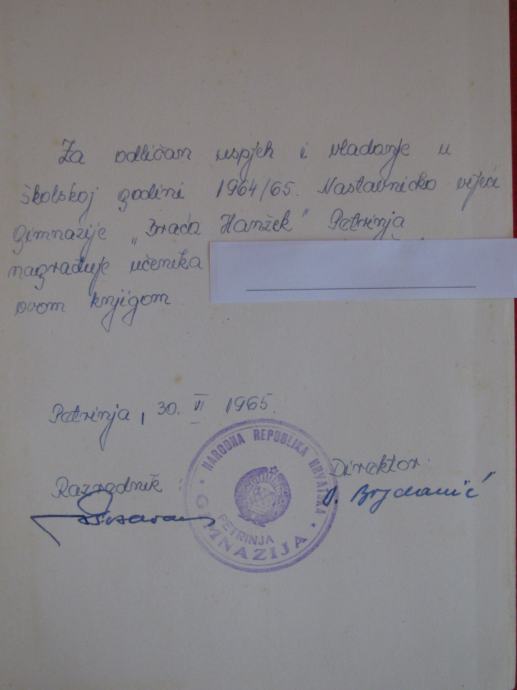 Za odličan uspjeh i vladanje u
školskoj godini 1964/65. Nastavničko vijeće
Gimnazije „Braća Hanžek" Petrinja
nagrađuje učenika
ovom knjigom
Petrinja, 30. VI 1965.
Razrednik
Direktor:
NARODNA REPUBLIKA HRVATSKA
PETRINJA
GIMNAZIJA